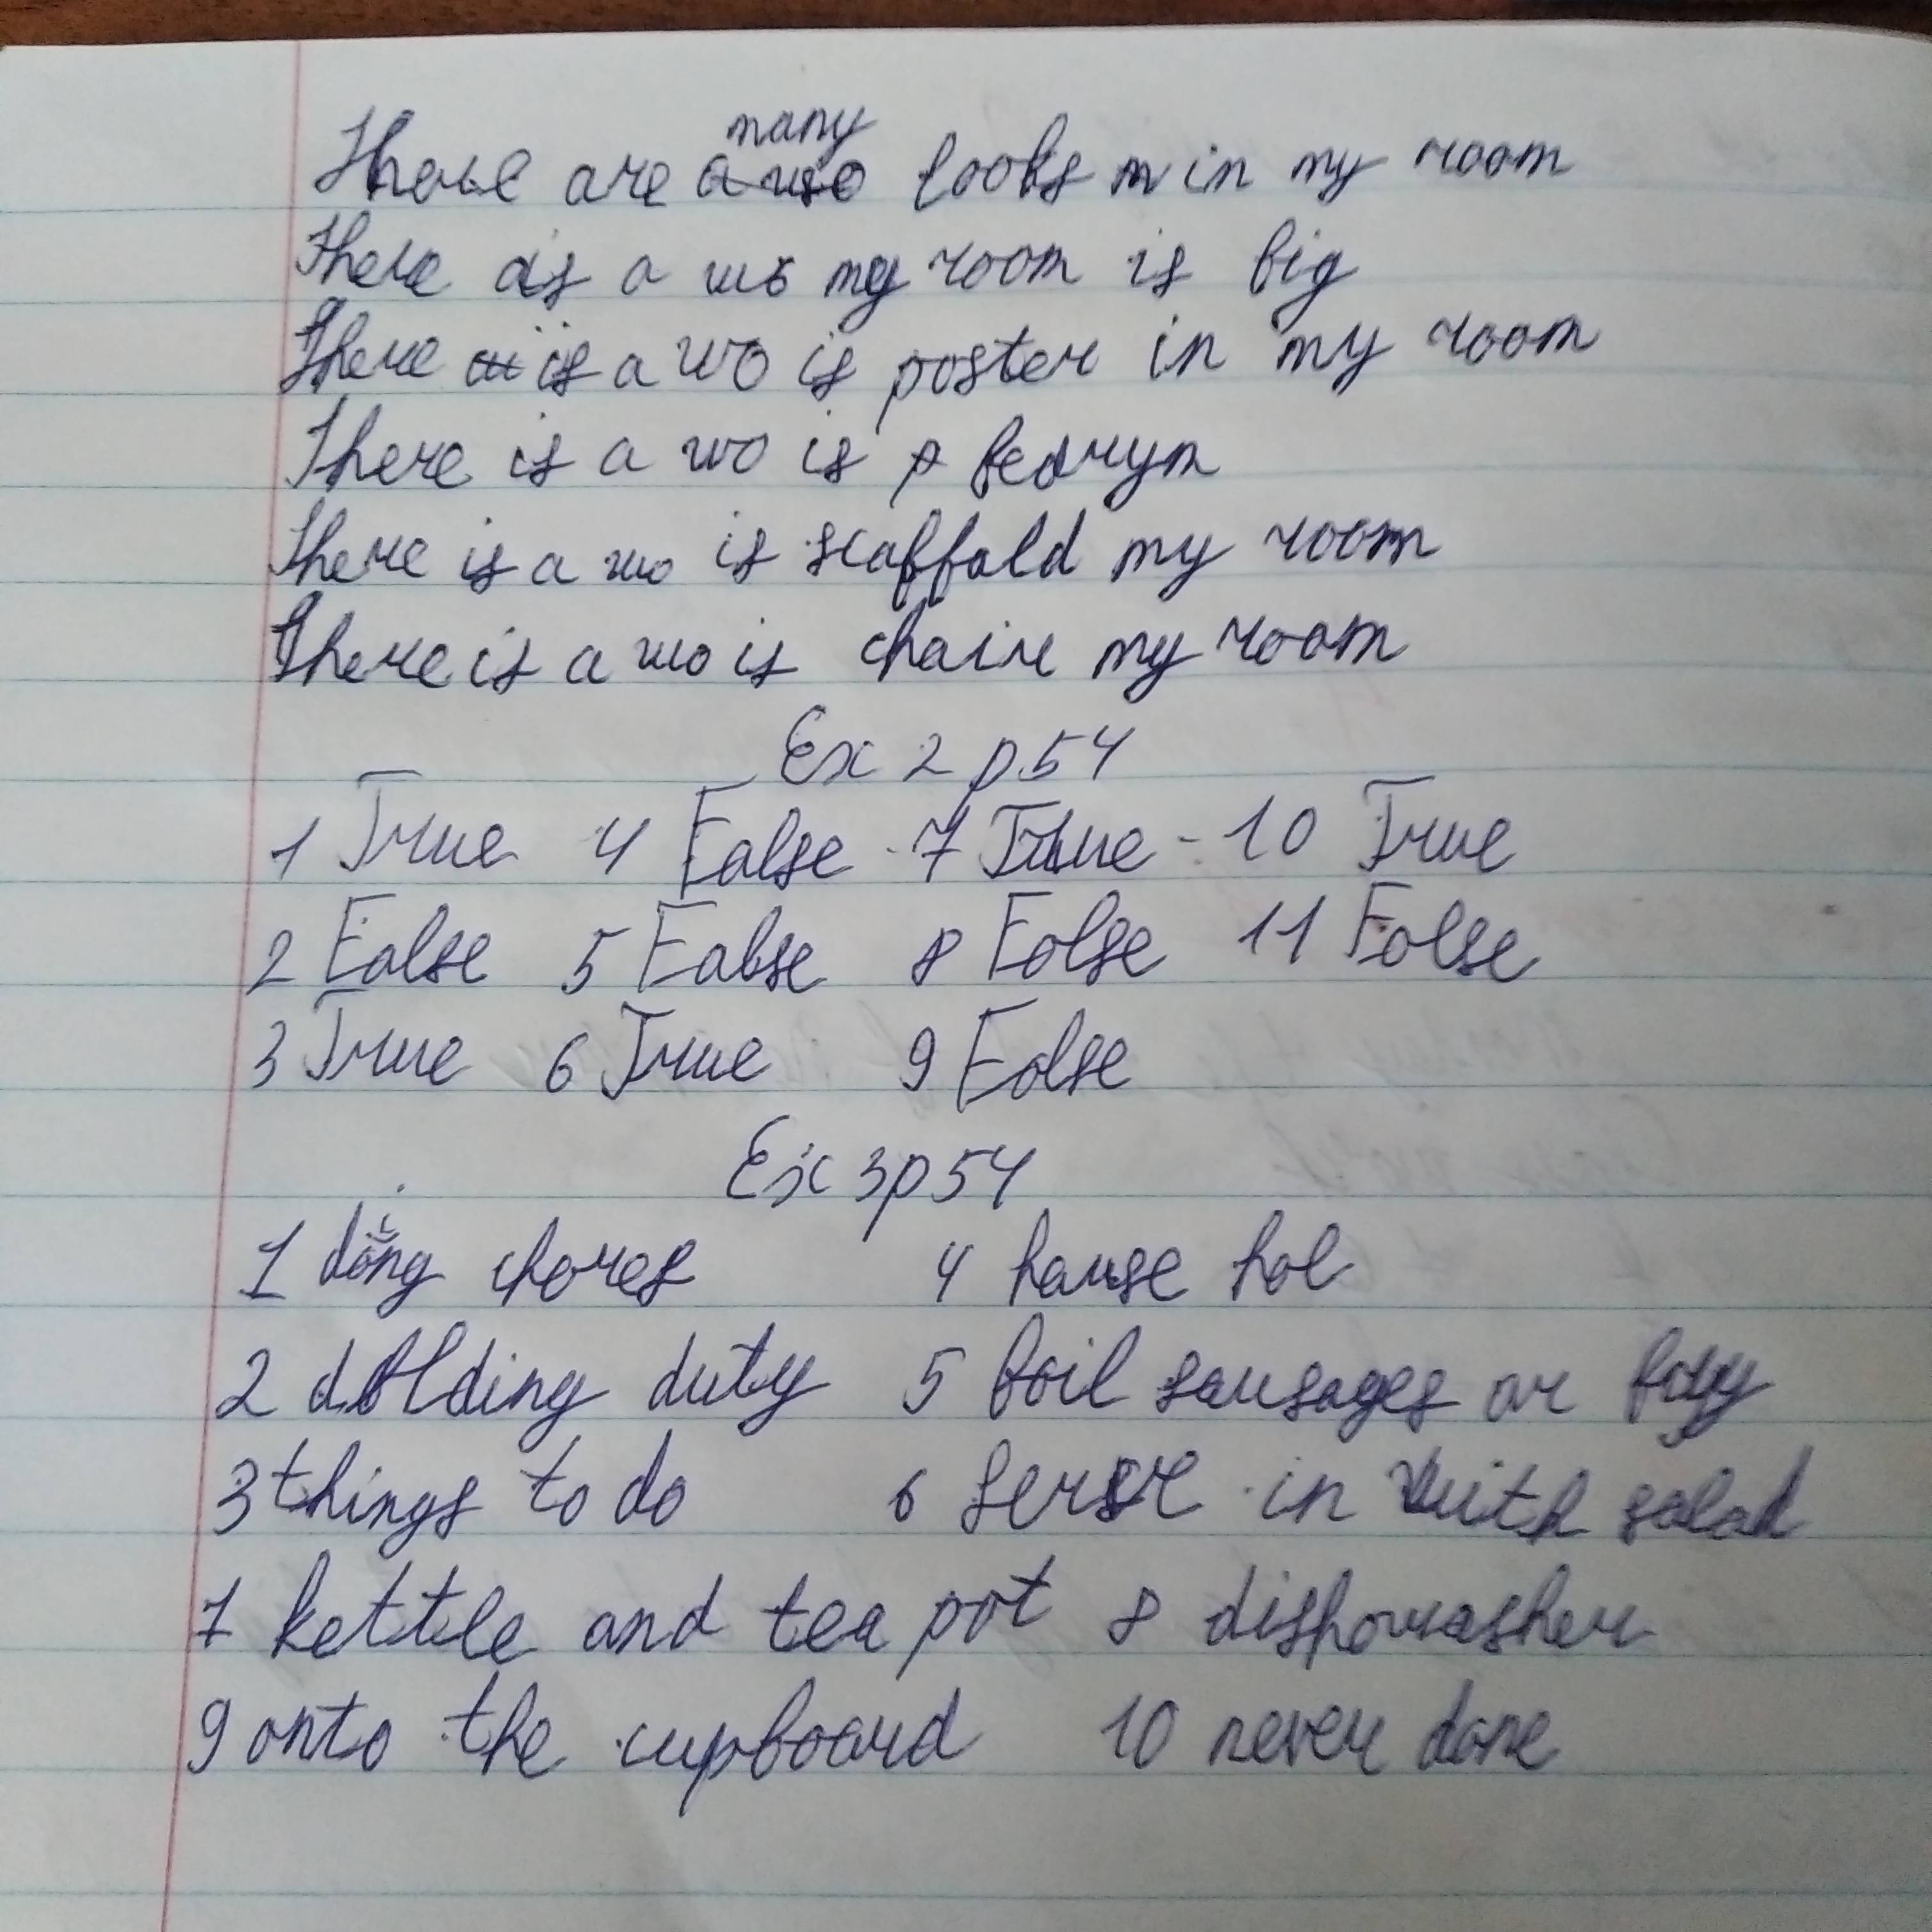 There are many books in my room
There is a wo my room is big
There is a wo is poster in my room
There is a wo is bedrym
There is a wo is scaffald my room
There is a wo is chair my room
Ex 2 p.54
1 True 4 False 7 True - 10 True
2 False 5 False 8 Folse 11 Folse
3 True 6 True 9 Folse
Ex 3 p 54
1 doing chores 4 hause hol
2 duty 5 boil sausages or
3 things to do 6 in with salad
7 kettle and tea pot 8 dishowasher
9 onto the cupboard 10 never done